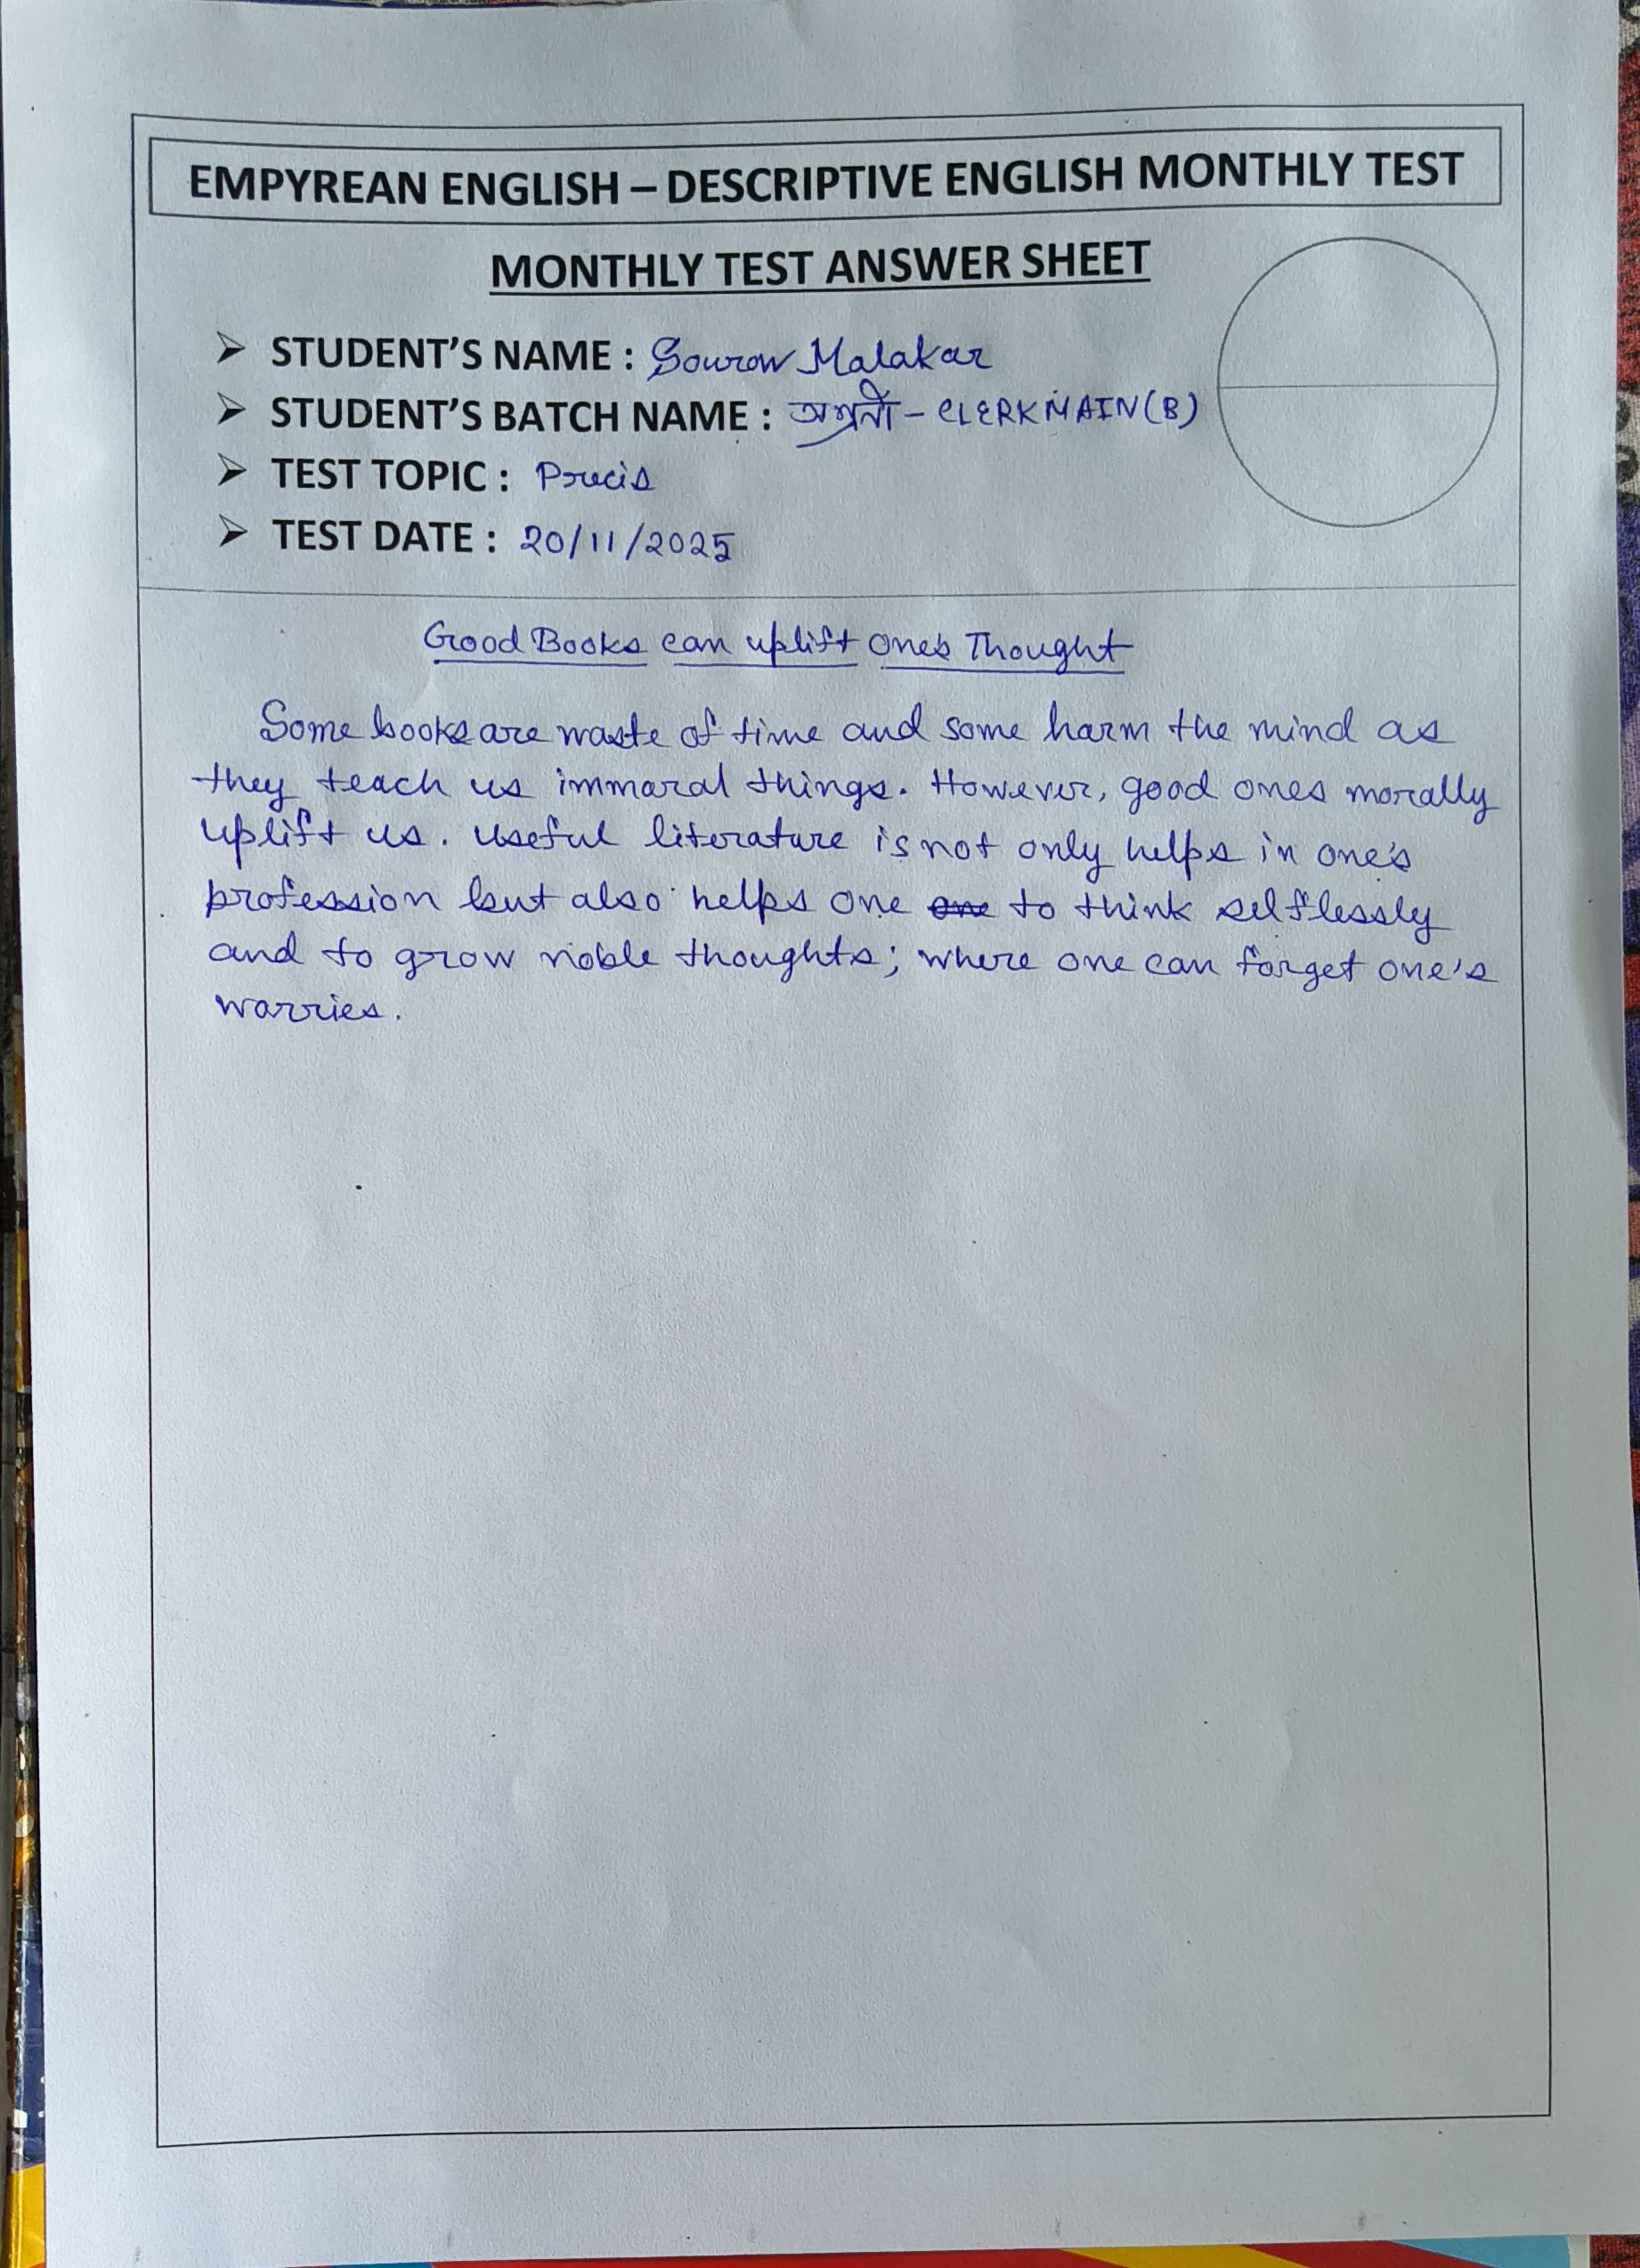 EMPYREAN ENGLISH – DESCRIPTIVE ENGLISH MONTHLY TEST
MONTHLY TEST ANSWER SHEET
➤ STUDENT'S NAME : Sourov Malakar
➤ STUDENT'S BATCH NAME : অগ্রনী - CLERK MAIN (B)
➤ TEST TOPIC : Precis
➤ TEST DATE : 20/11/2025
Good Books can uplift one's Thought
Some books are waste of time and some harm the mind as
they teach us immoral things. However, good ones morally
uplift us. Useful literature is not only helps in one's
profession but also helps one one to think selflessly
and to grow noble thoughts; where one can forget one's
worries.